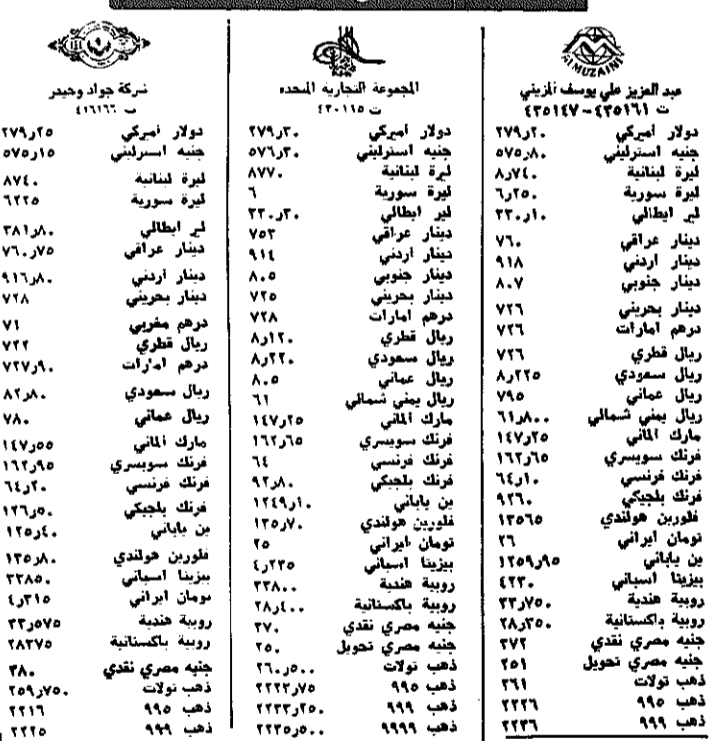 ALMUZAINI
عبد العزيز علي يوسف المزيني
ت ٤٣٥١٦١ - ٤٣٥١٤٧
دولار أميركي ٢٧٩,٢٠
جنيه استرليني ٥٧٥,٨٠
ليرة لبنانية ٨,٧٤٠
ليرة سورية ٦,٢٥٠
لير ايطالي ٢٣٠,١٠
دينار عراقي ٧٦٠
دينار اردني ٩١٨
دينار جنوبي ٨٠٧
دينار بحريني ٧٢٦
درهم امارات ٧٢٦
ريال قطري ٧٢٦
ريال سعودي ٨,٢٢٥
ريال عماني ٧٩٥
ريال يمني شمالي ٦١,٨٠٠
مارك الماني ١٤٧,٢٥
فرنك سويسري ١٦٢,٦٥
فرنك فرنسي ٦٤,١٠
فرنك بلجيكي ٩٢٦٠
فلورين هولندي ١٣٥٦٥
تومان ايراني ٢٦
ين ياباني ١٢٥٩,٩٥
بيزيتا اسباني ٤٢٣٠
روبية هندية ٣٣,٧٥٠
روبية باكستانية ٢٨,٣٥٠
جنيه مصري نقدي ٣٧٢
جنيه مصري تحويل ٢٥١
ذهب تولات ٢٦١
ذهب ٩٩٥ ٢٢٢٦
ذهب ٩٩٩ ٢٢٣٦
المجموعة التجارية المتحده
ت ٤٣٠١١٥
دولار أميركي ٢٧٩,٣٠
جنيه استرليني ٥٧٦,٣٠
ليرة لبنانية ٨٧٧٠
ليرة سورية ٦
لير ايطالي ٢٣٠,٣٠
دينار عراقي ٧٥٣
دينار أردني ٩١٤
دينار جنوبي ٨٠٥
دينار بحريني ٧٢٥
درهم امارات ٧٢٨
ريال قطري ٨,١٢٠
ريال سعودي ٨,٢٢٠
ريال عماني ٨٠٥
ريال يمني شمالي ٦١
مارك الماني ١٤٧,٢٥
فرنك سويسري ١٦٢,٦٥
فرنك فرنسي ٦٤
فرنك بلجيكي ٩٢,٨٠
ين ياباني ١٢٤٩,١٠
فلورين هولندي ١٣٥,٧٠
تومان ايراني ٢٥
بيزيتا اسباني ٤,٢٣٥
روبية هندية ٣٣٨٠٠
روبية باكستانية ٢٨,٤٠٠
جنيه مصري نقدي ٣٧٠
جنيه مصري تحويل ٢٥٠
ذهب تولات ٢٦٠,٥٠٠
ذهب ٩٩٥ ٢٢٢٣,٧٥
ذهب ٩٩٩ ٢٢٣٣,٢٥٠
ذهب ٩٩٩٩ ٢٢٣٥,٥٠٠
شركة جواد وحيدر
ت ٤٢٦١٦٦
دولار أميركي ٢٧٩,٢٥
جنيه استرليني ٥٧٥,١٥
ليرة لبنانية ٨٧٤٠
ليرة سورية ٦٢٢٥
لير ايطالي ٣٨١,٨٠
دينار عراقي ٧٦٠,٧٥
دينار أردني ٩١٦,٨٠
دينار بحريني ٧٢٨
درهم مغربي ٧١
ريال قطري ٧٢٢
درهم امارات ٧٢٧,٩٠
ريال سعودي ٨٢,٨٠
ريال عماني ٧٨٠
مارك الماني ١٤٧,٥٥
فرنك سويسري ١٦٢,٩٥
فرنك فرنسي ٦٤,٢٠
فرنك بلجيكي ١٢٦,٥٠
ين ياباني ١٢٥,٤٠
فلورين هولندي ١٣٥,٨٠
بيزيتا اسباني ٣٣٨٥٠
تومان ايراني ٤,٣١٥
روبية هندية ٣٣,٥٧٥
روبية باكستانية ٢٨٣٧٥
جنيه مصري نقدي ٣٨٠
ذهب تولات ٢٥٩,٧٥٠
ذهب ٩٩٥ ٢٢١٦
ذهب ٩٩٩ ٢٢٢٥